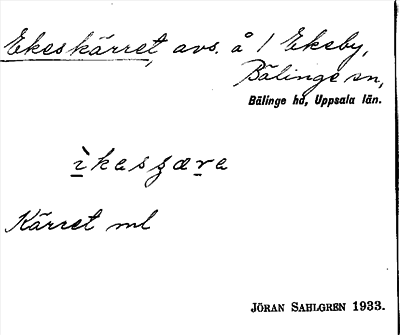 Ekeskärret, avs. å / Ekeby,
Bälinge sn,
Bälinge hd, Uppsala län.
Kärret ml
JÖRAN SAHLGREN 1933.